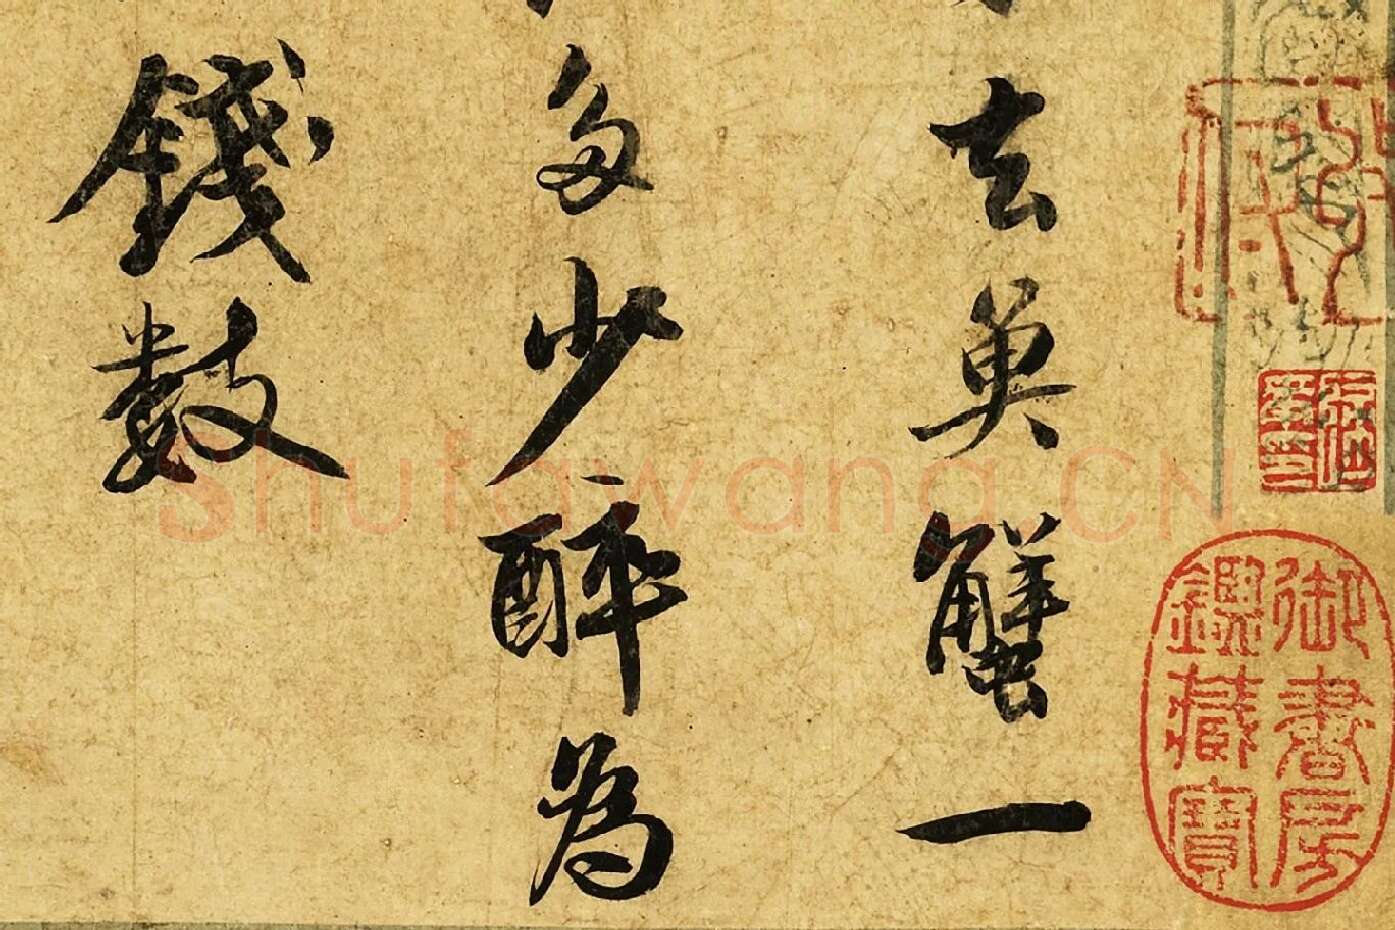 御書房
鑑藏寶
去魚蟹一
多少醉為
錢數
Shufawang.CN